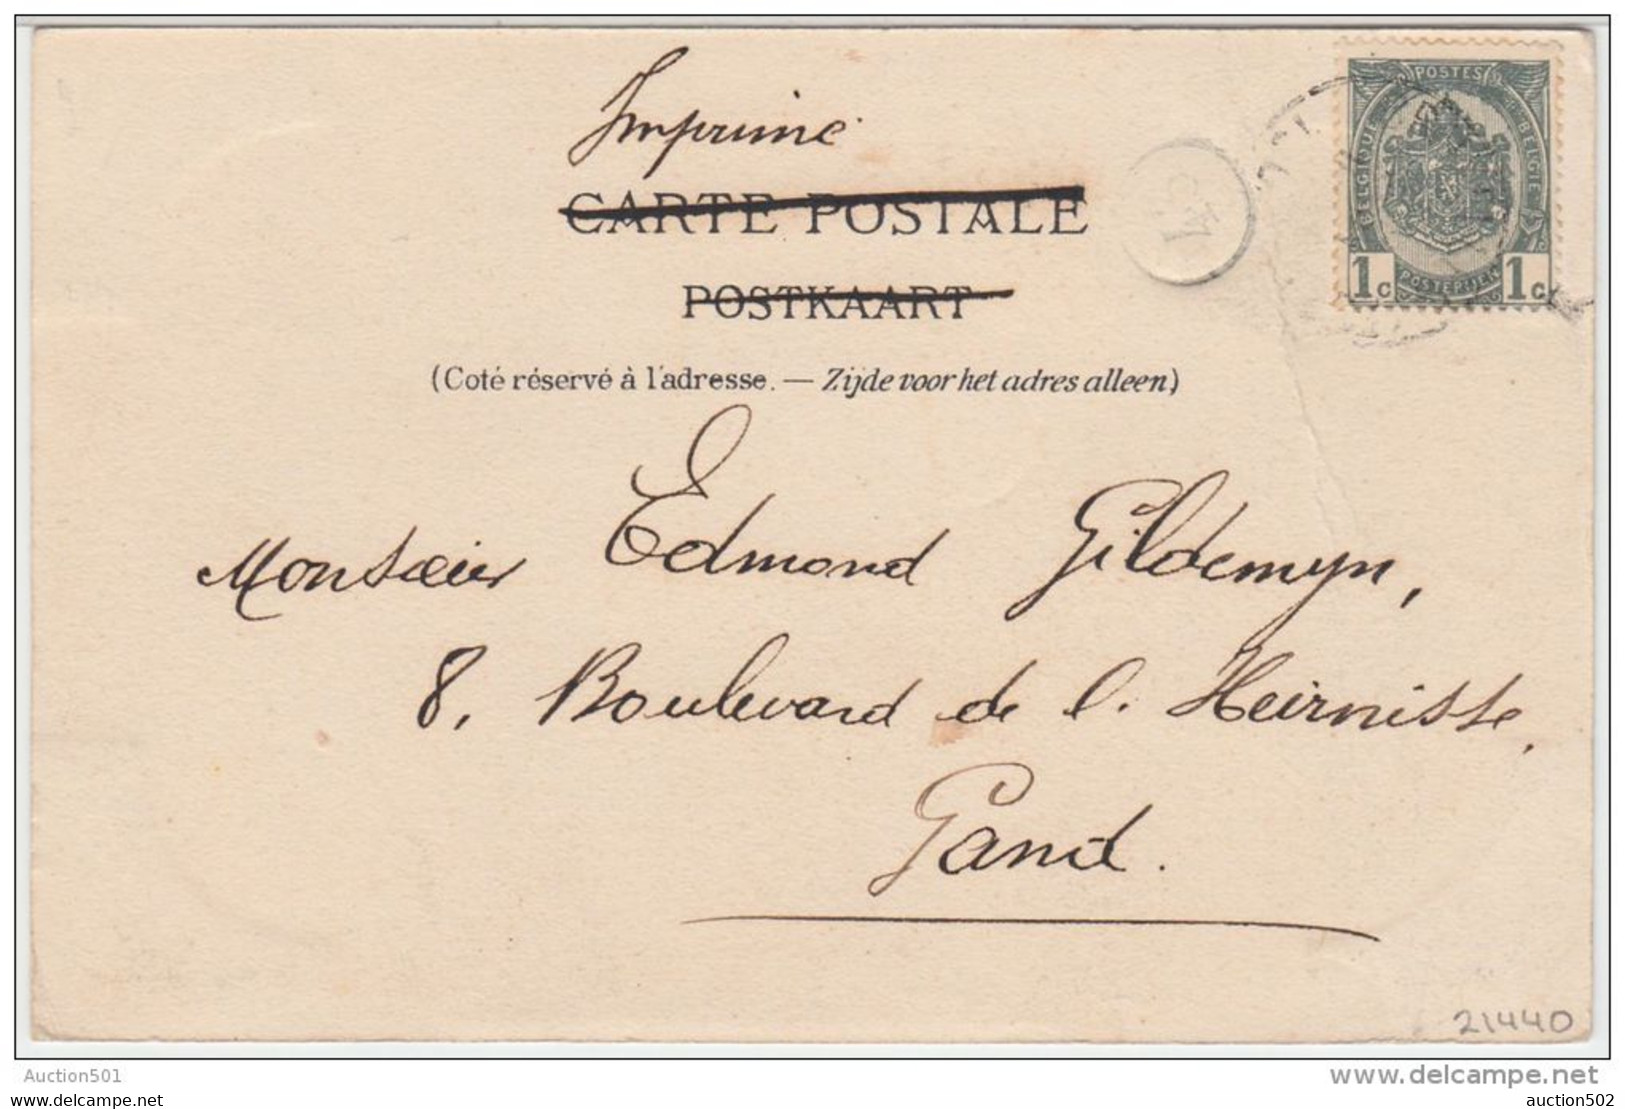 Imprimé
POSTES
BELGIQUE BELGIË
1c POSTERIJEN 1c
CARTE POSTALE
POSTKAART
(Coté réservé à l'adresse. — Zijde voor het adres alleen)
Monsieur Edmond Gildemyn,
8, Boulevard de l. Heirnisse,
Gand.
21440
www.delcampe.net
Auction501
auction502 auction502